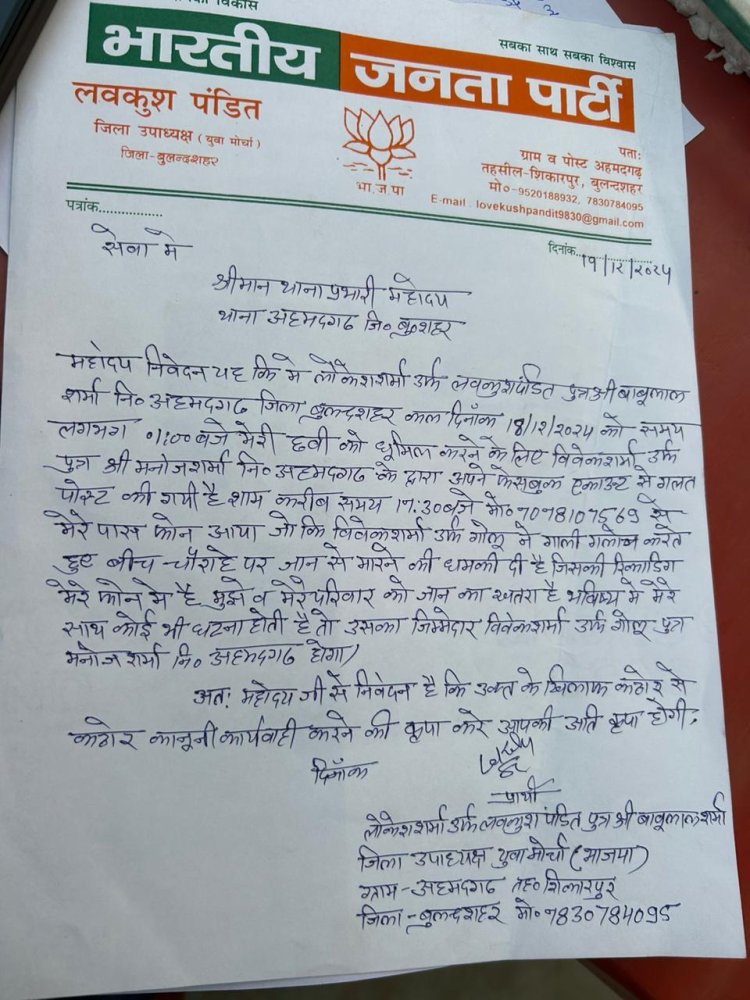 सबका विकास
सबका साथ सबका विश्वास
भारतीय जनता पार्टी
लवकुश पंडित
जिला उपाध्यक्ष (युवा मोर्चा)
जिला-बुलन्दशहर
भा.ज.पा
पताः
ग्राम व पोस्ट अहमदगढ़
तहसील-शिकारपुर, बुलन्दशहर
मो०-9520188932, 7830784095
E-mail : lovekushpandit9830@gmail.com
पत्रांक.................
दिनांक....................
19/12/2024
सेवा मे
श्रीमान थाना प्रभारी महोदय
थाना अहमदगढ जि० बु०शहर
महोदय निवेदन यह कि मे लोकेश शर्मा उर्फ लवकुश पंडित पुत्र श्री बाबूलाल
शर्मा नि० अहमदगढ जिला बुलन्दशहर कल दिनाँक 18/12/2024 को समय
लगभग 01:00 बजे मेरी छवी को धूमिल करने के लिए विवेक शर्मा उर्फ
पुत्र श्री मनोज शर्मा नि० अहमदगढ के द्वारा अपने फेसबुक एकाउन्ट से गलत
पोस्ट की गयी है शाम करीब समय 17:30 बजे मो० 7078107569 से
मेरे पास फोन आया जो कि विवेक शर्मा उर्फ गोलू ने गाली गलोच करते
हुए बीच-चौराहे पर जान से मारने की धमकी दी है जिसकी रिकाडिंग
मेरे फोन मे है, मुझे व मेरे परिवार को जान का खतरा है भविष्य मे मेरे
साथ कोई भी घटना होती है तो उसका जिम्मेदार विवेक शर्मा उर्फ गोलू पुत्र
मनोज शर्मा नि० अहमदगढ होगा।
अतः महोदय जी से निवेदन है कि उक्त के खिलाफ कठोर से
कठोर कानूनी कार्यवाही करने की कृपा करे आपकी अति कृपा होगी,
दिनाँक
प्रार्थी
लोकेश शर्मा उर्फ लवकुश पंडित पुत्र श्री बाबूलाल शर्मा
जिला उपाध्यक्ष युवा मोर्चा (भाजपा)
ग्राम-अहमदगढ तह० शिकारपुर
जिला-बुलन्दशहर मो० 7830784095